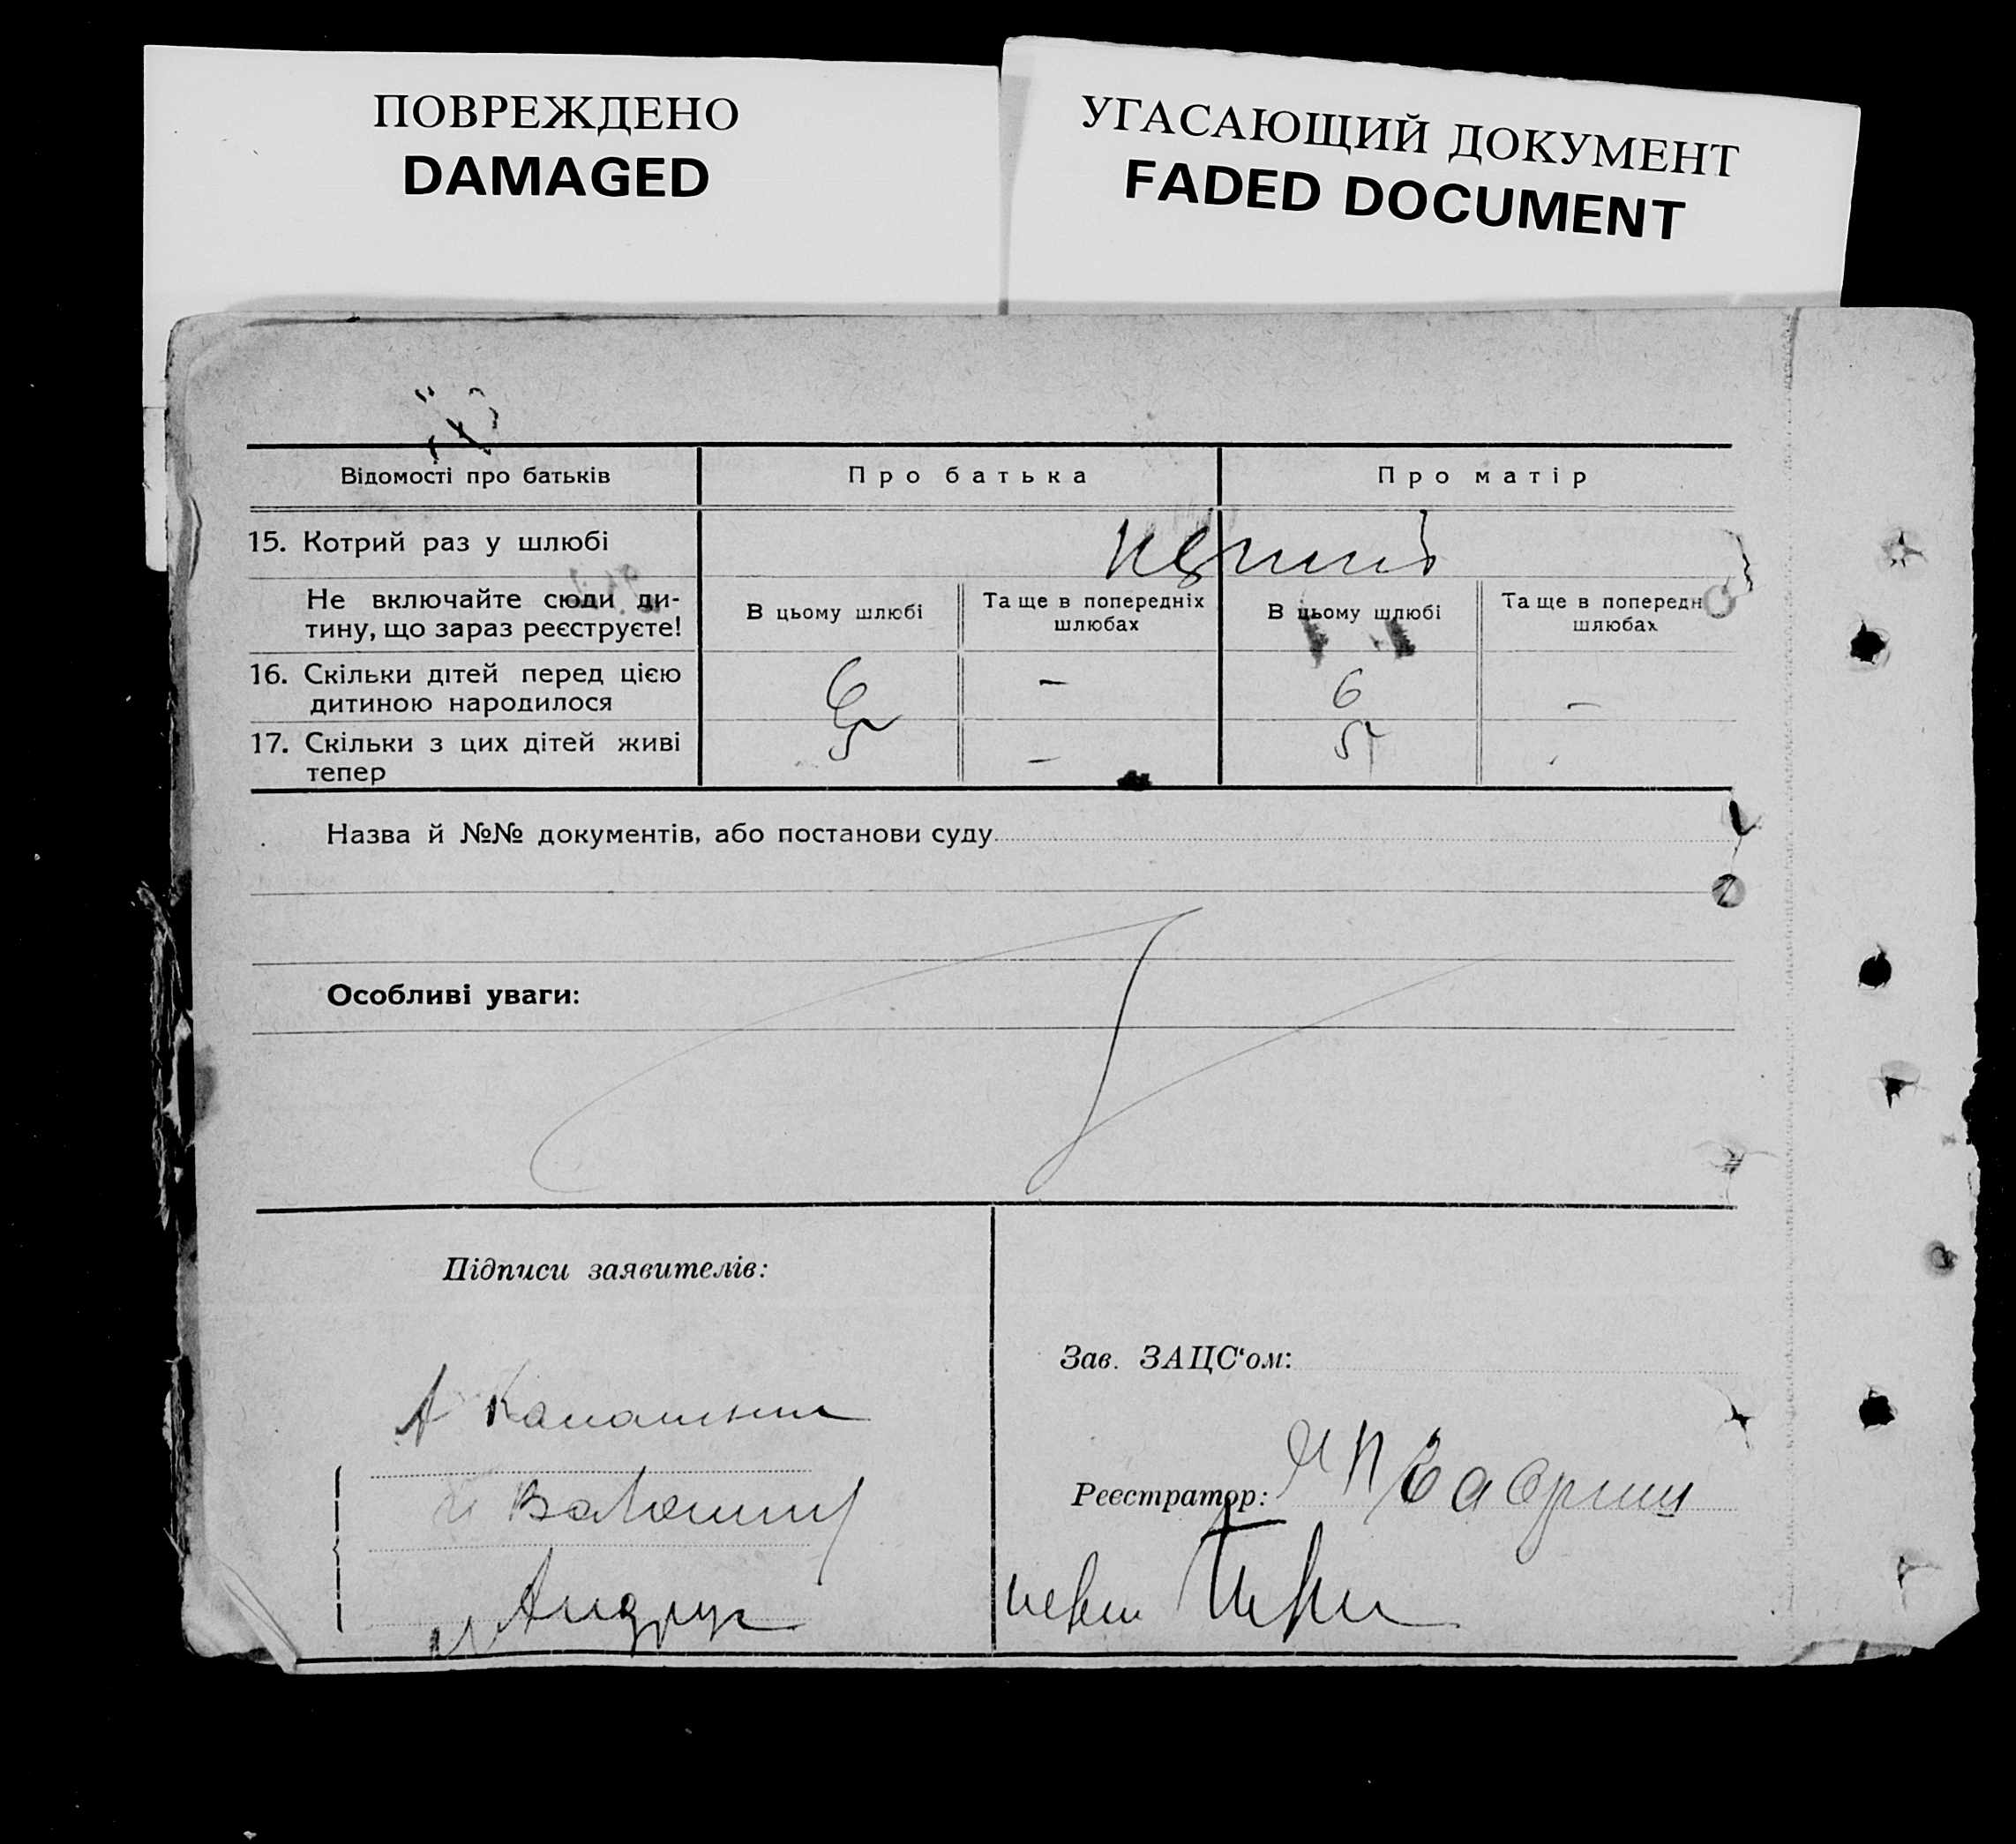 ПОВРЕЖДЕНО
DAMAGED
УГАСАЮЩИЙ ДОКУМЕНТ
FADED DOCUMENT
Відомості про батьків Про батька Про матір
15. Котрий раз у шлюбі
Не включайте сюди ди-
тину, що зараз реєструєте!
В цьому шлюбі
Та ще в попередніх
шлюбах
В цьому шлюбі
Та ще в попередн
шлюбах
16. Скільки дітей перед цією
дитиною народилося
6 – 6 –
17. Скільки з цих дітей живі
тепер
5 – 5
Назва й №№ документів, або постанови суду
Особливі уваги:
Підписи заявителів:
Зав. ЗАЦС‘ом:
Реєстратор:
Андрук